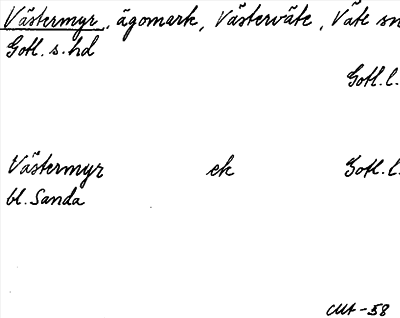 Västermyr, ägomark, Västerväte, Väte sn
Gotl. s. hd
Gotl. l.
Västermyr ek Gotl. l.
bl. Sanda
cMt -58